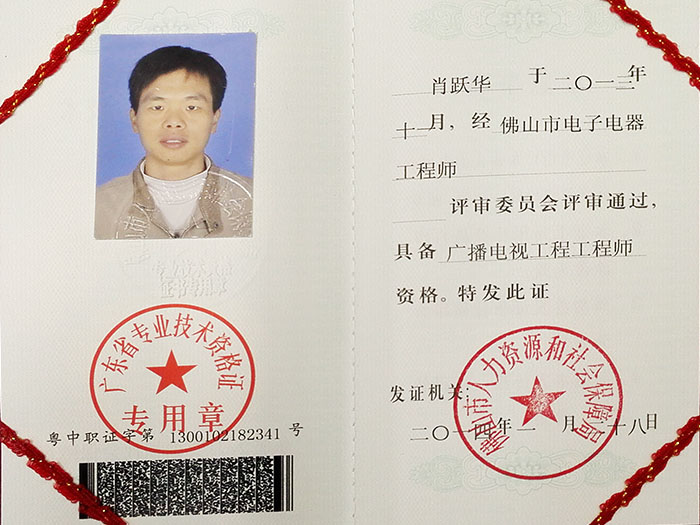 广东省专业技术资格证
专用章
粤中职证字第 1300102182341 号
肖跃华 于 二〇一三年
十一月，经 佛山市电子电器
工程师
评审委员会评审通过，
具备 广播电视工程工程师
资格。特发此证
佛山市人力资源和社会保障局
发证机关：
二〇一四年 一 月 二十八日